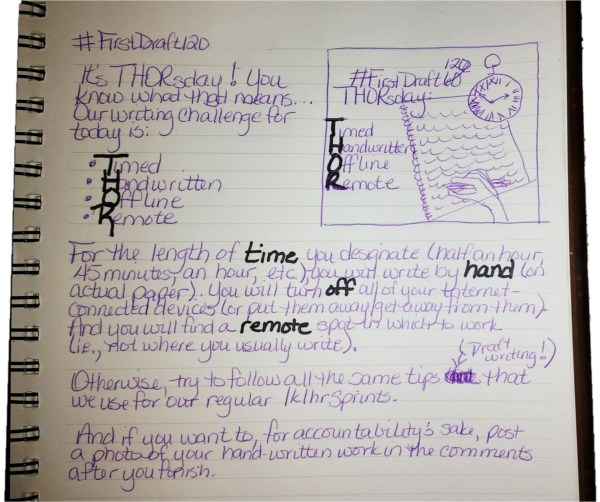 #FirstDraft120
It's THORsday! You
know what that means...
Our writing challenge for
today is:
• Timed
• Handwritten
• Offline
• Remote
120
#FirstDraft60
THORsday:
Timed
Handwritten
Offline
Remote
For the length of time you designate (half an hour,
45 minutes, an hour, etc.) you will write by hand (on
actual paper). You will turn off all of your Internet-
connected devices (or put them away/get away from them).
And you will find a remote spot in which to work
(i.e., not where you usually write).
(Draft
writing!)
Otherwise, try to follow all the same tips that
we use for our regular 1k1hr sprints.
And if you want to, for accountability's sake, post
a photo of your hand-written work in the comments
after you finish.